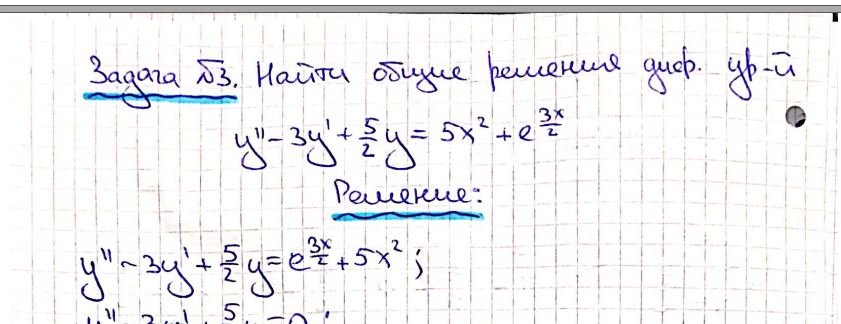 Задача №3. Найти общие решения диф. ур-й
y'' - 3y' + 5/2 y = 5x² + e^(3x/2)
Решение:
y'' - 3y' + 5/2 y = e^(3x/2) + 5x² ;
y'' - 3y' + 5/2 y = 0 ;